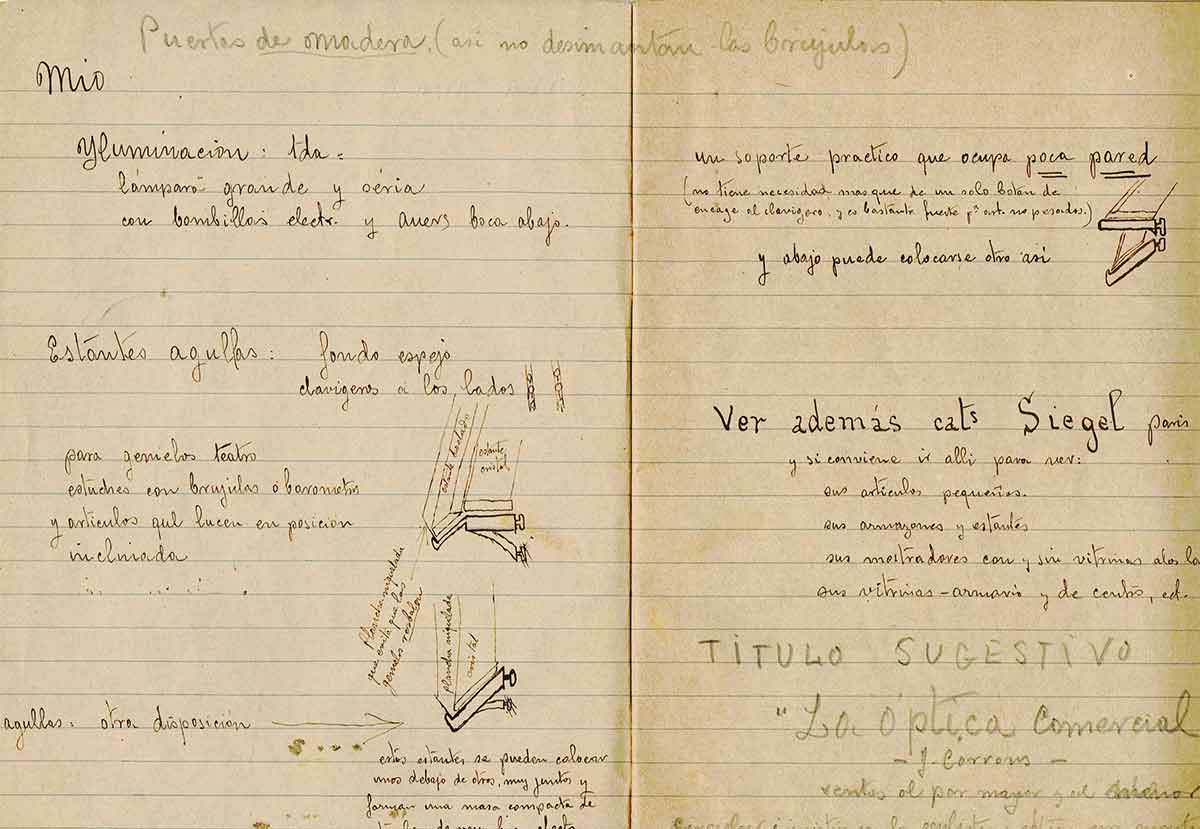 Puertas de madera, (asi no desimantan las brujulas)
Mio
Yluminacion: tda =
lámpara grande y séria
con bombillas electr. y auers boca abajo.
Estantes agullas: fondo espejo
clavigeros a los lados
para gemelos teatro
estuches con brujulas o barometros
y articulos qul lucen en posición
inclniada
estante
cristal
plancha niquelada
que evita que los
gemelos resbalen
plancha niquelada
cristal
agullas: otra disposición
estos estantes se pueden colocar
unos debajo de otros, muy juntos y
forman una masa compacta de
un soporte practico que ocupa poca pared
(no tiene necesidad mas que de un solo botón de
encage al clavigero, y es bastante fuerte pª art. no pesados.)
y abajo puede colocarse otro asi
Ver además cats Siegel paris
y si conviene ir alli para ver:
sus articulos pequeños.
sus armazones y estantes
sus mostradores con y sin vitrinas a los la
sus vitrinas-armario y de centro, ect.
TÍTULO SUGESTIVO
"La óptica comercial
- J. Corrons -
ventas al por mayor y al